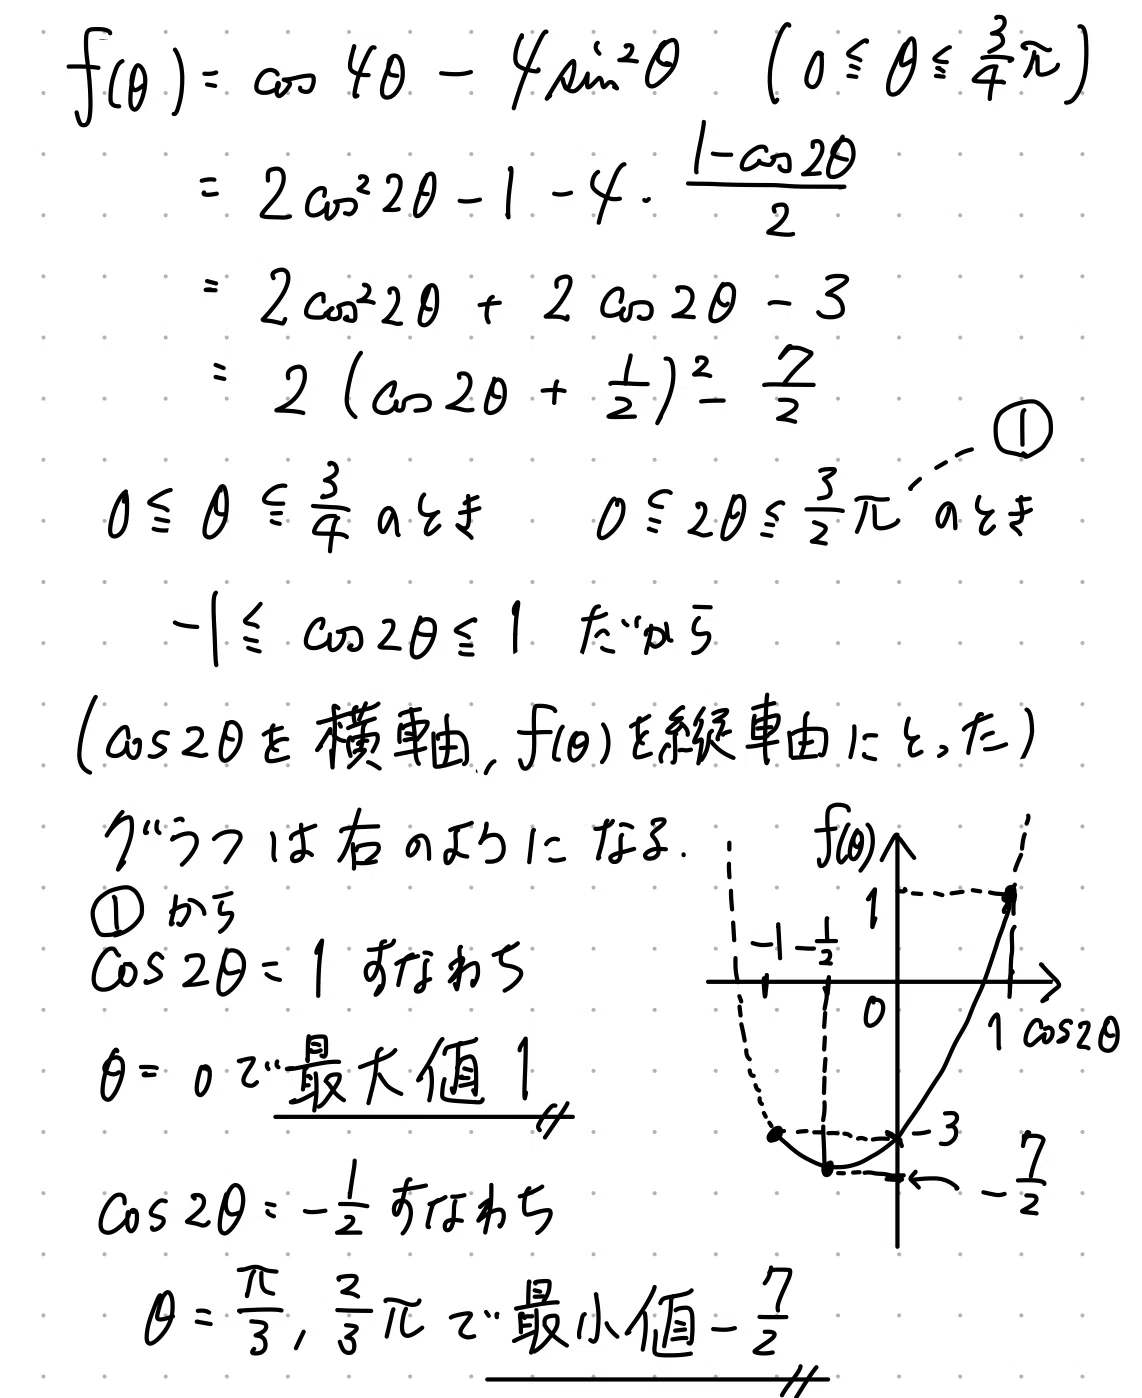 f(θ) = cos 4θ - 4sin²θ (0 ≦ θ ≦ 3/4 π)
= 2cos²2θ - 1 - 4 · (1-cos2θ)/2
= 2cos²2θ + 2 cos2θ - 3
= 2 (cos2θ + 1/2)² - 7/2
①
0 ≦ θ ≦ 3/4 のとき 0 ≦ 2θ ≦ 3/2 π のとき
-1 ≦ cos2θ ≦ 1 だから
(cos2θを横軸, f(θ)を縦軸にとった)
グラフは右のようになる.
①から
cos2θ = 1 すなわち
θ = 0 で最大値 1
cos2θ = -1/2 すなわち
θ = π/3, 2/3 π で最小値 - 7/2
f(θ)
1
-1 -1/2
0
1 cos2θ
-3
- 7/2